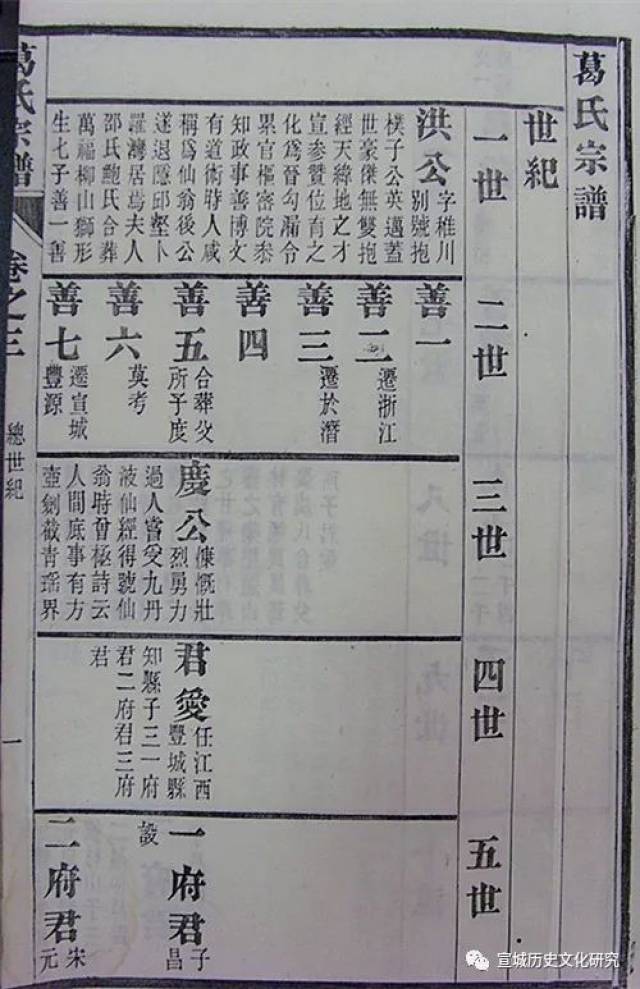 葛氏宗譜
世紀
一世
二世
三世
四世
五世
洪公
字稚川
別號抱
樸子公英邁蓋
世豪傑無雙抱
經天緯地之才
宣參贊位育之
化爲晉勾漏令
累官樞密院叅
知政事善博文
有道術時人咸
稱爲仙翁後公
遂退隱邱壑卜
羅灣居焉夫人
邵氏鮑氏合葬
萬福柳山獅形
生七子善一善
善一
善二
遷浙江
善三
遷於潛
善四
善五
合葬父
所子度
善六
莫考
善七
遷宣城
豐源
慶公
慷慨壯
烈勇力
過人嘗受九丹
液仙經得號仙
翁時曾極詩云
人間底事有方
壺劍截青瑶界
君愛
任江西
豐城縣
知縣子三一府
君二府君三府
君
一府君
子
昌
設
二府君
宋
元
葛氏宗譜
卷之三
總世紀
一
宣城历史文化研究